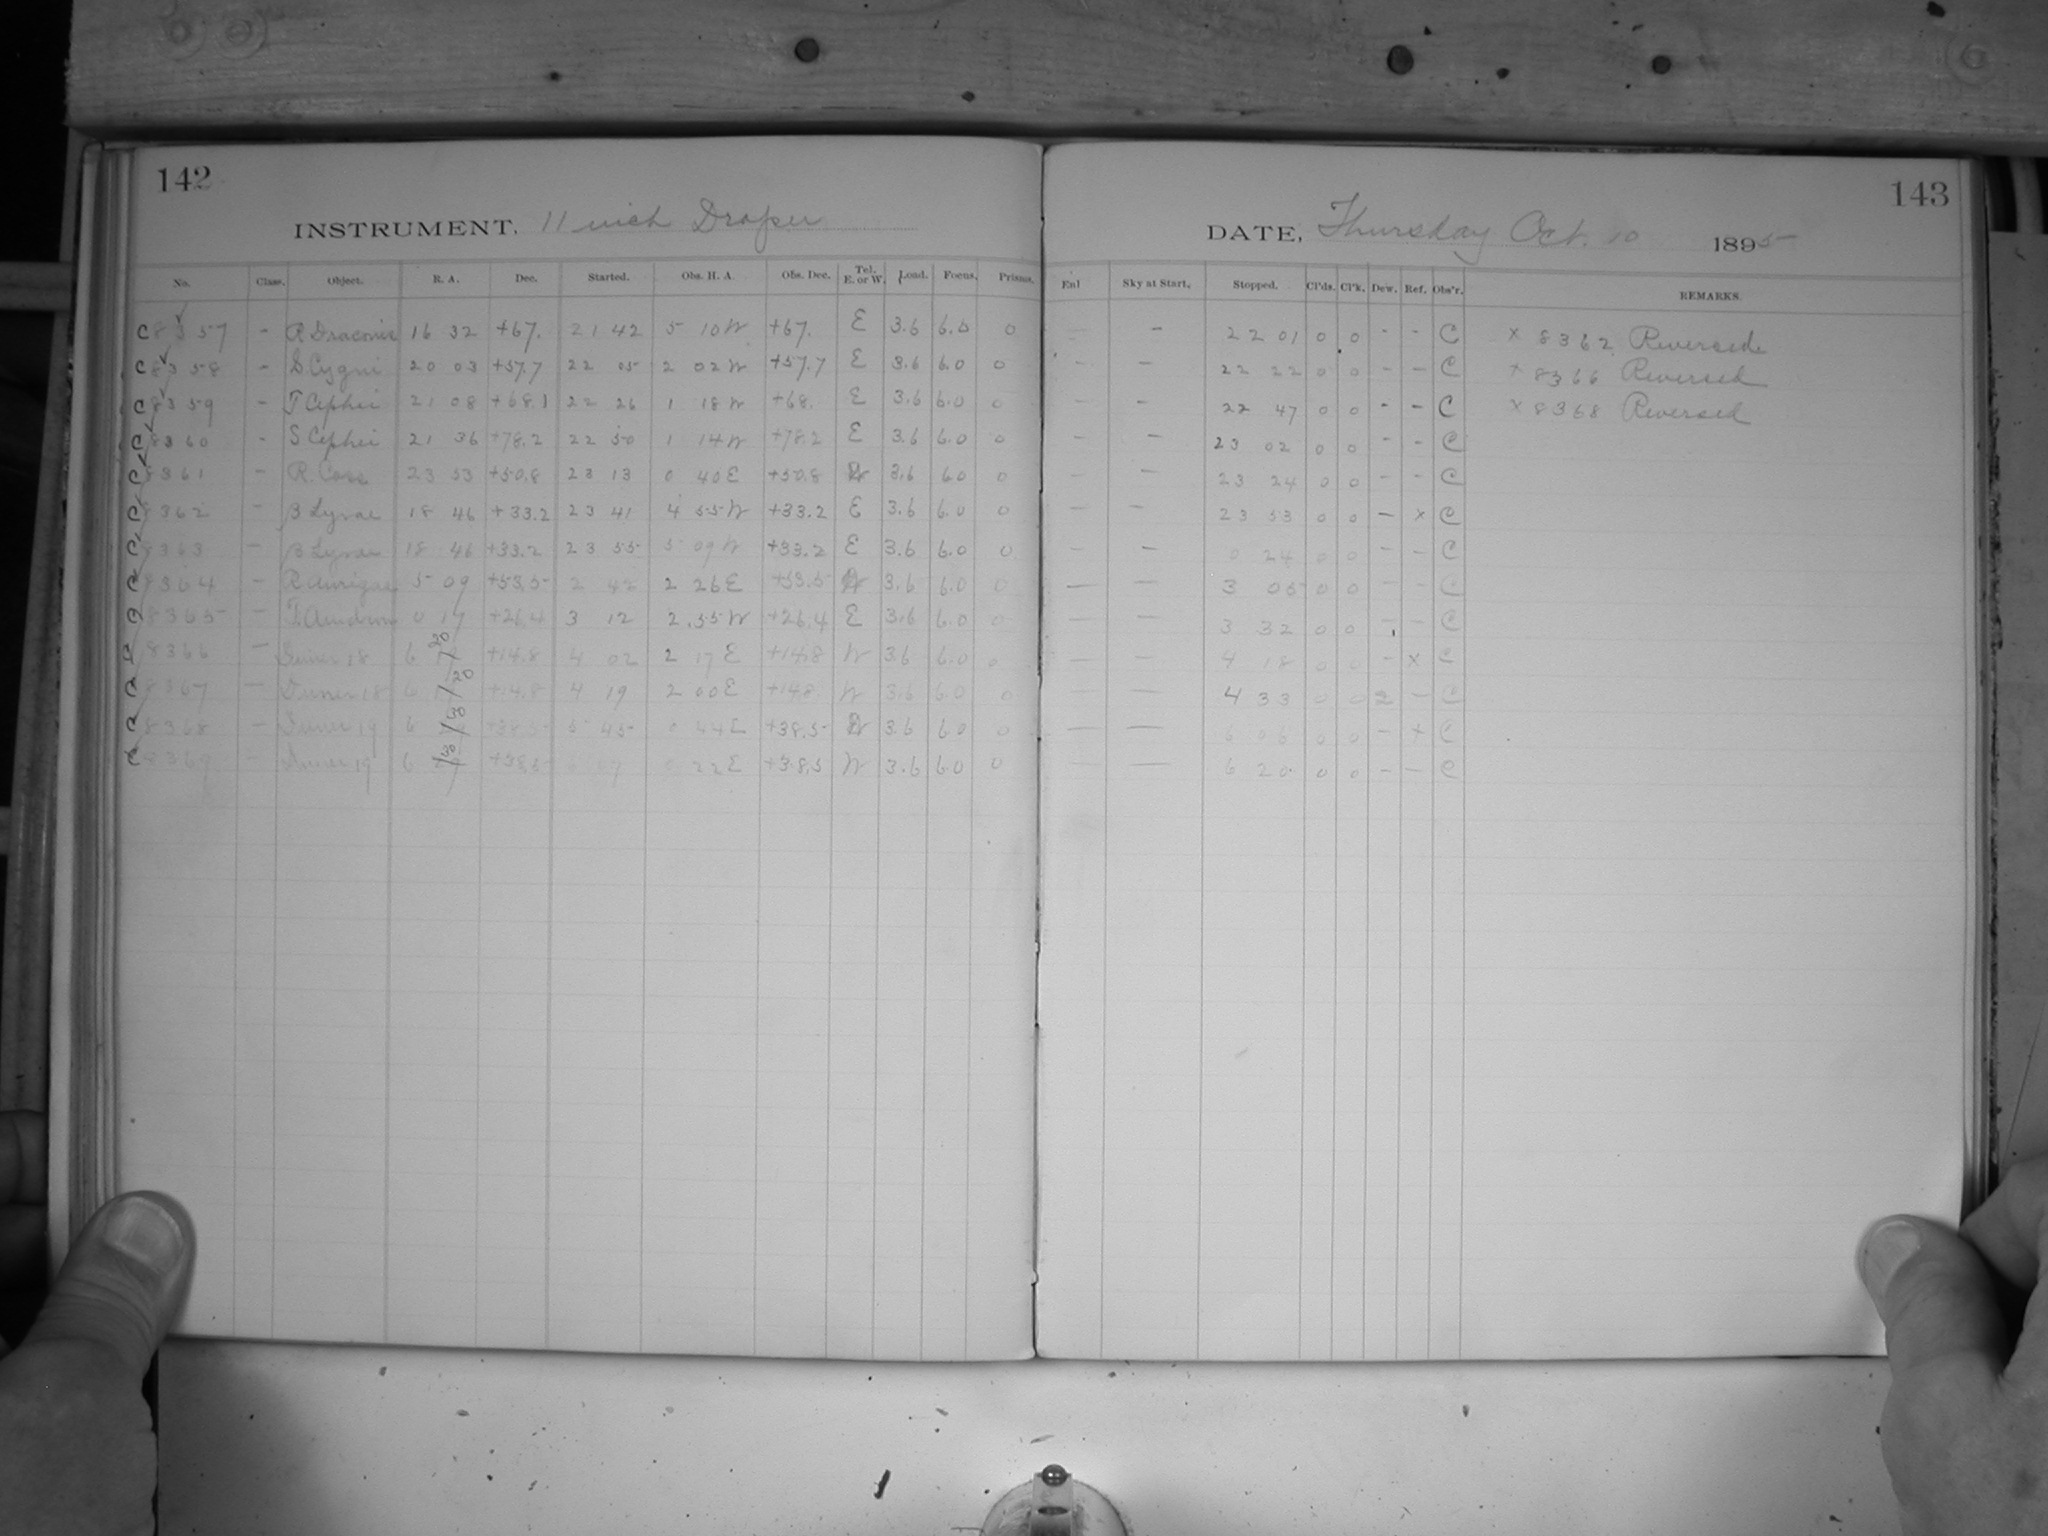 142
INSTRUMENT, 11 inch Draper
No. Class. Object. R. A. Dec. Started. Obs. H. A. Obs. Dec. Tel. E. or W. Load. Focus. Prisms.
C8357 - R Draconis 16 32 +67. 21 42 5 10 W +67. E 3.6 6.0 0
C8358 - S Cygni 20 03 +57.7 22 05 2 02 W +57.7 E 3.6 6.0 0
C8359 - T Cephei 21 08 +68.1 22 26 1 18 W +68. E 3.6 6.0 0
C8360 - S Cephei 21 36 +78.2 22 50 1 14 W +78.2 E 3.6 6.0 0
C8361 - R. Cass 23 53 +50.8 23 13 0 40 E +50.8 W 3.6 6.0 0
C8362 - β Lyrae 18 46 +33.2 23 41 4 55 W +33.2 E 3.6 6.0 0
C8363 - β Lyrae 18 46 +33.2 23 55 5 09 W +33.2 E 3.6 6.0 0
C8364 - R Aurigae 5 09 +53.5 2 42 2 26 E +53.5 W 3.6 6.0 0
C8365 - T. Androm 0 17 +26.4 3 12 2.55 W +26.4 E 3.6 6.0 0
C8366 - Duner 18 6 20 +14.8 4 02 2 17 E +14.8 W 3.6 6.0 0
C8367 - Duner 18 6 20 +14.8 4 19 2 00 E +14.8 W 3.6 6.0 0
C8368 - Duner 19 6 +38.5 5 45 0 44 E +38.5 W 3.6 6.0 0
C8369 - Duner 19 6 +38.5 07 22 E +38.5 W 3.6 6.0 0
143
DATE, Thursday Oct. 10 1895
Enl Sky at Start. Stopped. Cl'ds. Cl'k. Dew. Ref. Obs'r. REMARKS.
- - 22 01 0 0 - - C x 8362 Reversed
- - 22 22 0 0 - - C + 8366 Reversed
- - 22 47 0 0 - - C x 8368 Reversed
- - 23 02 0 0 - - C
- - 23 24 0 0 - - C
- - 23 53 0 0 - x C
- - 0 24 0 0 - - C
- - 3 05 0 0 - - C
- - 3 32 0 0 - - C
- - 4 18 0 0 - x C
- - 4 33 0 0 2 - C
- - 6 06 0 0 - + C
- - 6 20 0 0 - - C